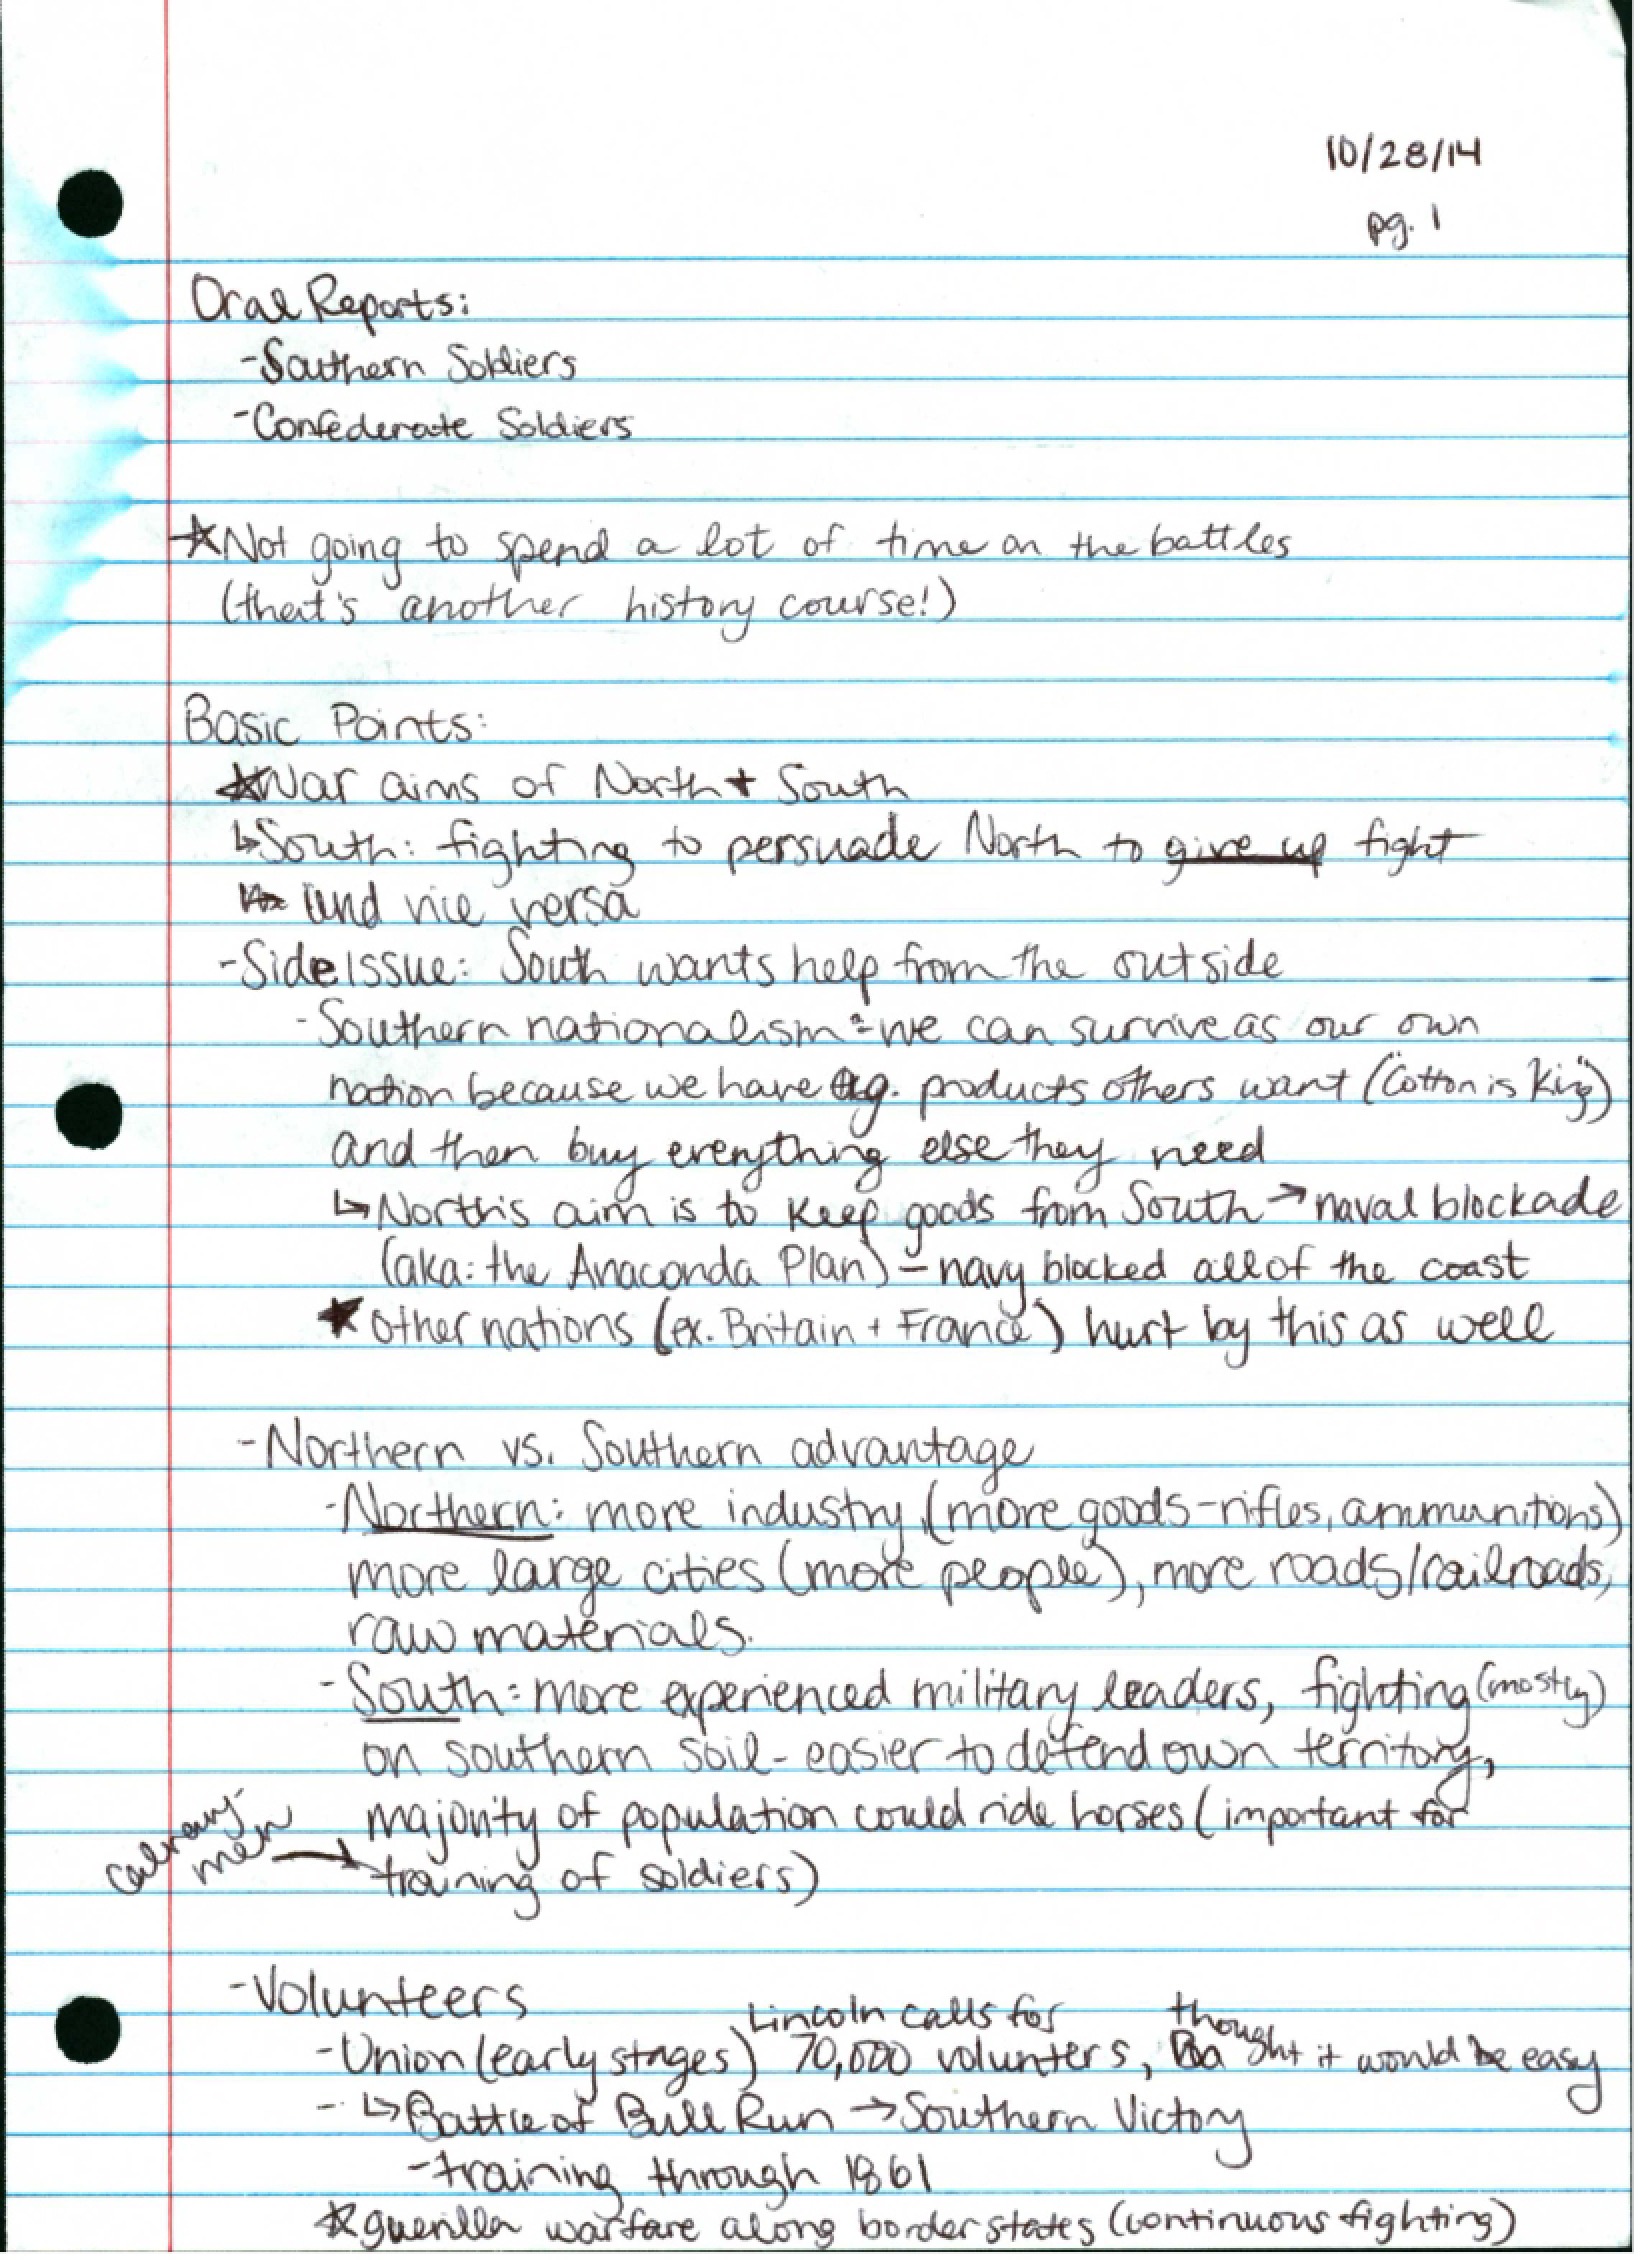 10/28/14
pg. 1
Oral Reports:
-Southern Soldiers
-Confederate Soldiers
☆Not going to spend a lot of time on the battles
(that's another history course!)
Basic Points:
☆War aims of North + South
↳South: fighting to persuade North to give up fight
and vice versa
-Side Issue: South wants help from the outside
-Southern nationalism = we can survive as our own
nation because we have ag. products others want ("Cotton is King")
and then buy everything else they need
↳North's aim is to keep goods from South → naval blockade
(aka: the Anaconda Plan) – navy blocked all of the coast
★other nations (ex. Britain + France) hurt by this as well
-Northern vs. Southern advantage
-Northern: more industry, (more goods - rifles, ammunitions)
more large cities (more people), more roads/railroads,
raw materials.
-South: more experienced military leaders, fighting (mostly)
on southern soil - easier to defend own territory,
majority of population could ride horses (important for
calvary men → training of soldiers)
-Volunteers
-Union (early stages), Lincoln calls for 70,000 volunters, thought it would be easy
- ↳Battle of Bull Run → Southern Victory
-training through 1861
☆guerilla warfare along border states (continuous fighting)